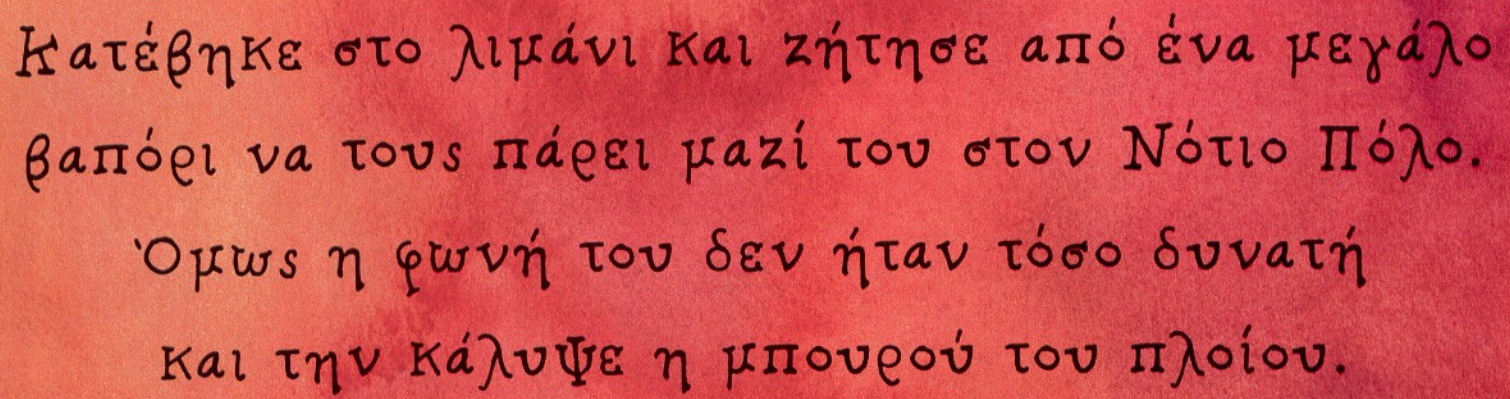 Κατέβηκε στο λιμάνι και ζήτησε από ένα μεγάλο
βαπόρι να τους πάρει μαζί του στον Νότιο Πόλο.
Όμως η φωνή του δεν ήταν τόσο δυνατή
και την κάλυψε η μπουρού του πλοίου.